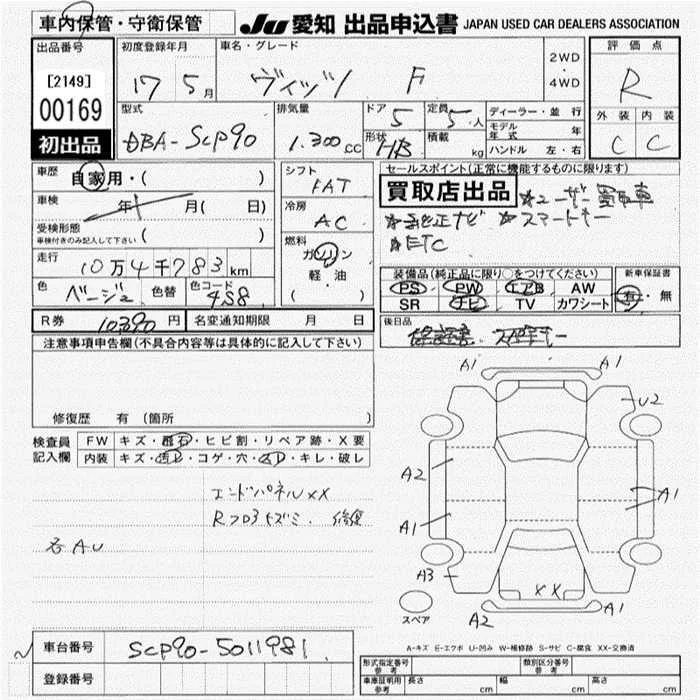 車内保管・守衛保管
JU 愛知 出品申込書 JAPAN USED CAR DEALERS ASSOCIATION
出品番号
[2149]
00169
初出品
初度登録年月
17 5月
車名・グレード
ヴィッツ F
2WD
・
4WD
評価点
R
外装 内装
C C
型式
DBA-SCP90
排気量
1.300 CC
ドア 5
定員 5人
形状 HB
積載 kg
ディーラー・並行
モデル年式 年
ハンドル 左・右
車歴
自家用・( )
車検
年 月( 日)
受検形態
車検付きのみ記入して下さい ( )
走行
10万4千783km
色 ベージュ
色替
色コード 4S8
シフト
FAT
冷房
AC
燃料
ガソリン
軽・油
( )
セールスポイント(正常に機能するものに限ります)
買取店出品
★ユーザー買取車
★純正ナビ ★スマートキー
★ETC
装備品(純正品に限り○をつけてください)
PS PW エアB AW
SR ナビ TV カワシート
新車保証書
有・無
R券 10390円
名変通知期限 月 日
後日品
注意事項申告欄(不具合内容等は具体的に記入して下さい)
修復歴 有(箇所
検査員記入欄
FW キズ・飛石・ヒビ割・リペア跡・X要
内装 キズ・汚レ・コゲ・穴・スレ・キレ・破レ
エンドパネルXX
Rフロアキズミ. 修復
各AU
A1 A1
U2
A2
A1
A1
A3
XX
A2 A1
スペア
A-キズ E-エクボ U-凹み W-補修跡 S-サビ C-腐食 XX-交換済
車台番号 SCP90-5011981
登録番号
形式指定番号 参考
類別区分番号 参考
車庫証明用 参考
長さ cm 幅 cm 高さ cm